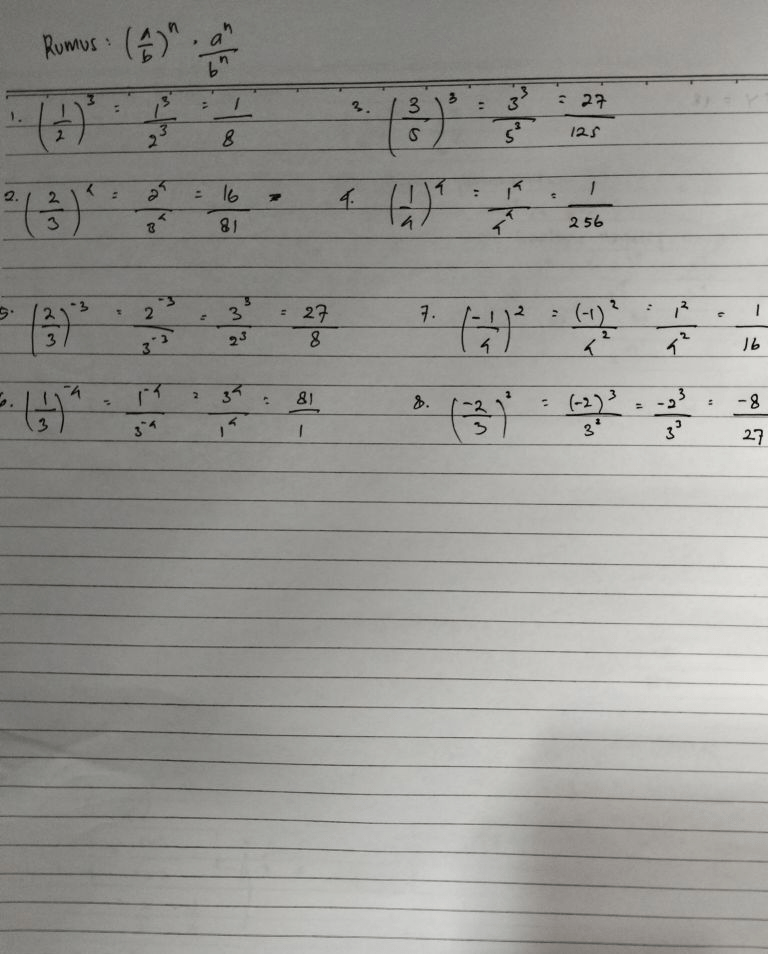 Rumus : (a/b)ⁿ . aⁿ/bⁿ
1. (1/2)³ = 1³/2³ = 1/8
3. (3/5)³ = 3³/5³ = 27/125
2. (2/3)⁴ = 2⁴/3⁴ = 16/81
4. (1/4)⁴ = 1⁴/4⁴ = 1/256
5. (2/3)⁻³ = 2⁻³/3⁻³ = 3³/2³ = 27/8
7. (-1/4)² = (-1)²/4² = 1²/4² = 1/16
6. (1/3)⁻⁴ = 1⁻⁴/3⁻⁴ = 3⁴/1⁴ = 81/1
8. (-2/3)³ = (-2)³/3³ = -2³/3³ = -8/27